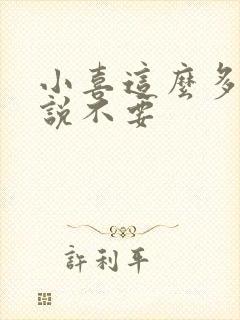 小喜這麼多
說不要
許利平